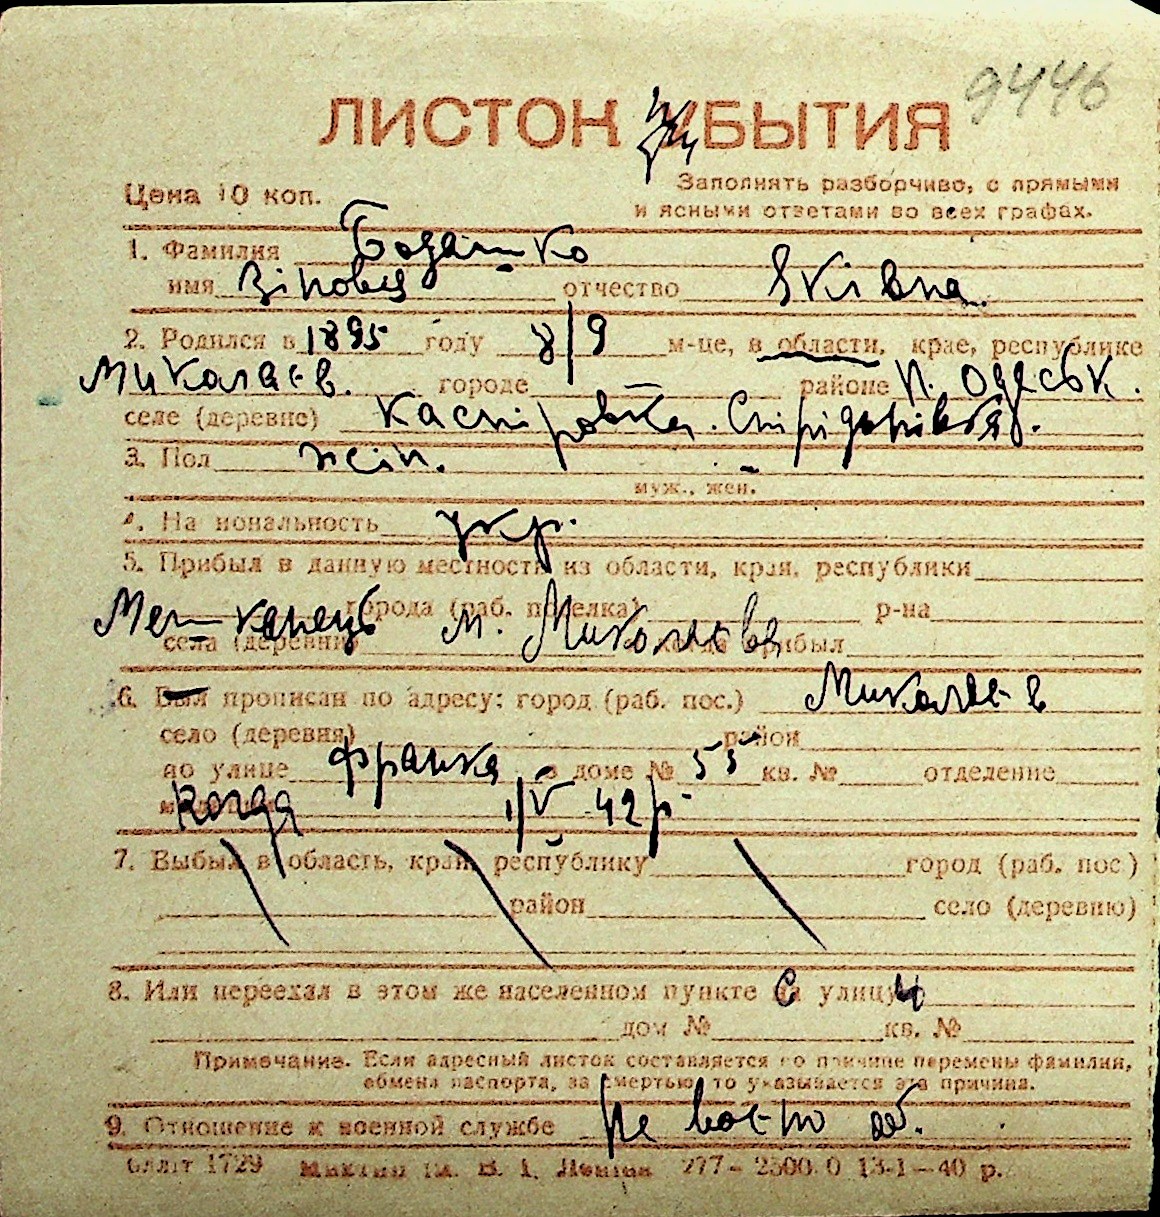 9446
ЛИСТОК БЫТИЯ
Цена 10 коп.
Заполнять разборчиво, с прямыми
и ясными ответами во всех графах.
1. Фамилия
имя отчество
2. Родился в 1895 году 8/9 м-це, в области, крае, республике
Миколаев. городе районе
селе (деревне)
3. Пол жін.
муж., жен.
4. На иональность укр.
5. Прибыл в данную местность из области, края, республики
города (раб. поселка) р-на
Мешканець м. Миколаєва
села (деревни) когда прибыл
6. Был прописан по адресу: город (раб. пос.) Миколаєв
село (деревня) район
по улице Франка в доме № 55 кв. № отделение
когда 1/V 42 р.
7. Выбыл в область, край, республику город (раб. пос.)
район село (деревню)
8. Или переехал в этом же населенном пункте С улицы
дом № кв. №
Примечание. Если адресный листок составляется по причине перемены фамилии,
обмена паспорта, за смертью, то указывается эта причина.
9. Отношение к военной службе не воєнно об.
1729 В. І. Леніна 277—2500.0 13-1—40 р.